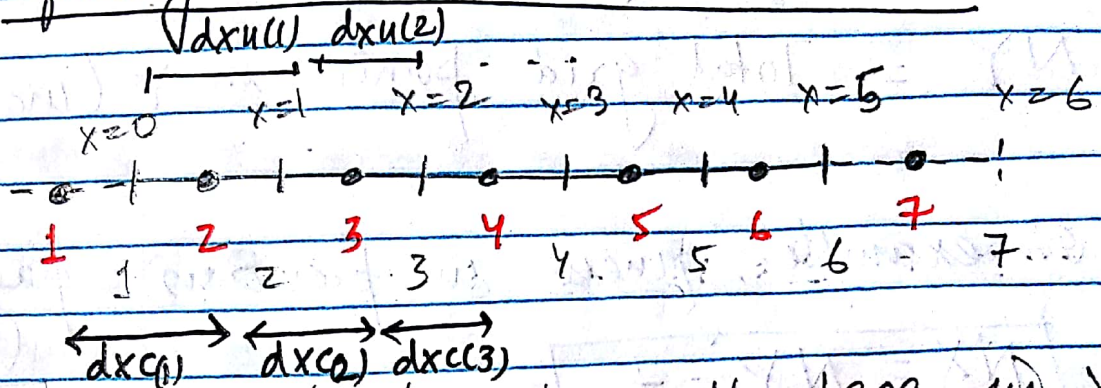 dxu(1) dxu(2)
x=0 x=1 x=2 x=3 x=4 x=5 x=6
1 2 3 4 5 6 7
1 2 3 4 5 6 7
dxc(1) dxc(2) dxc(3)